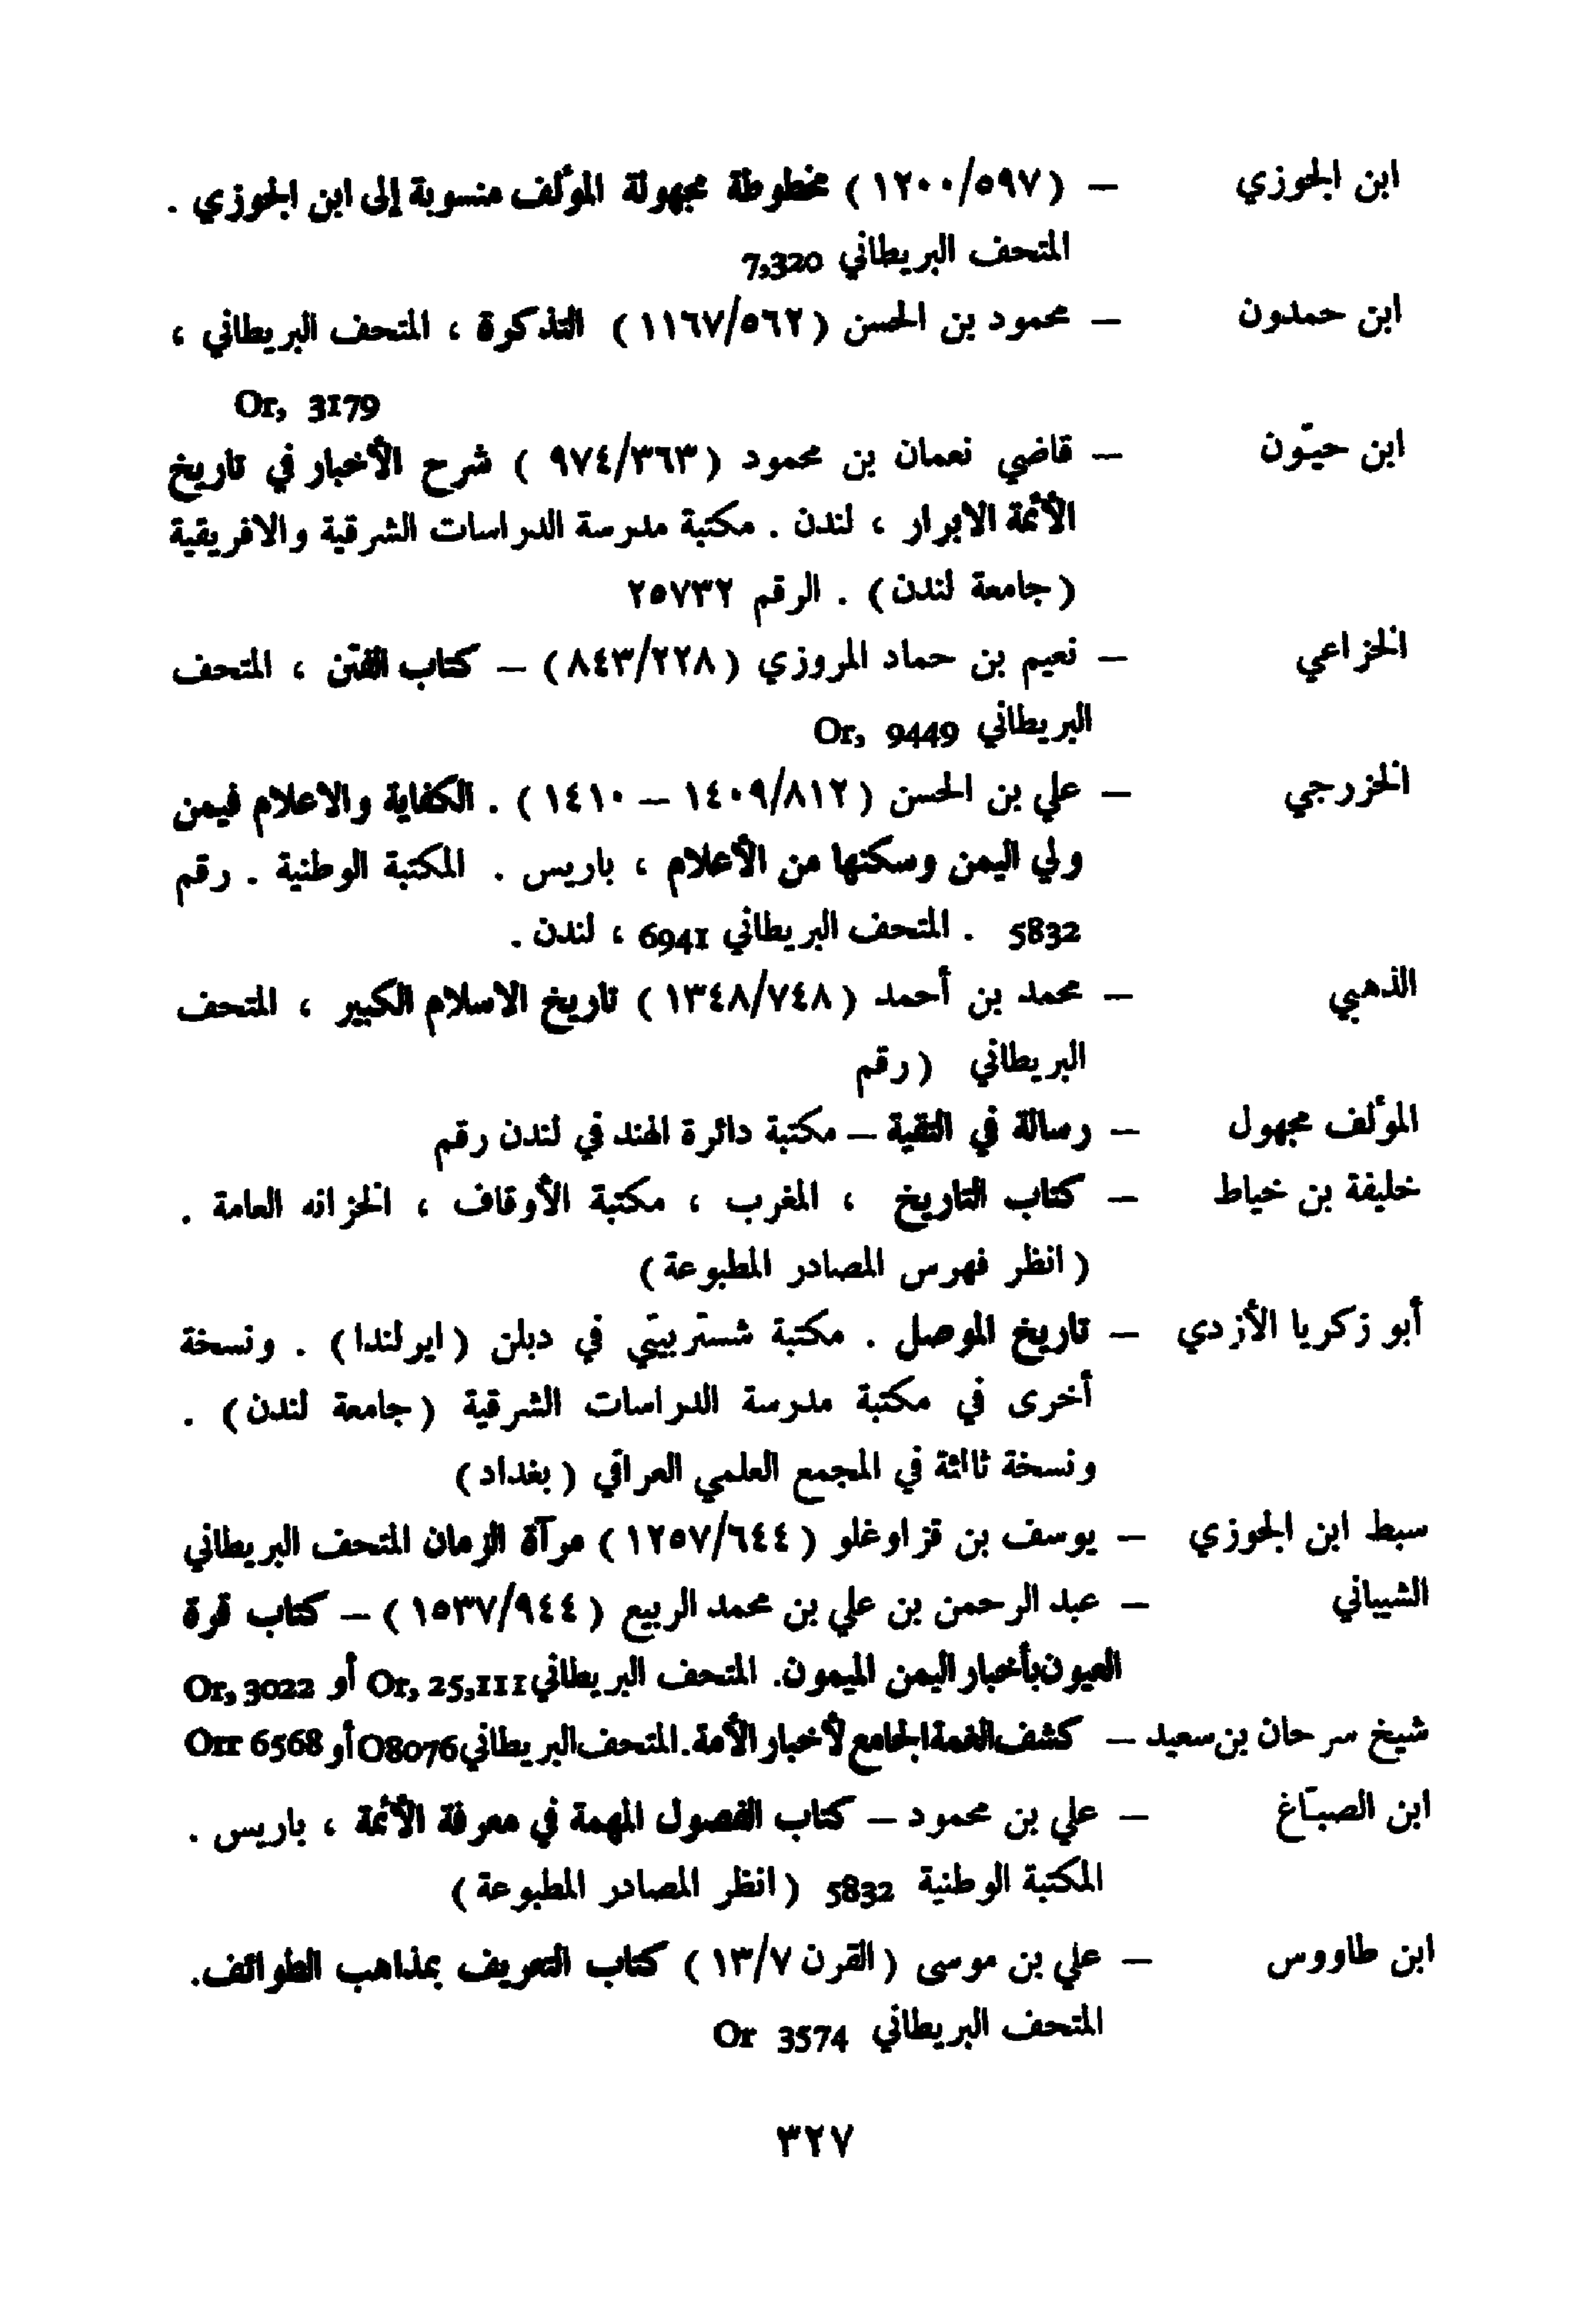 ابن الجوزي — (١٢٠٠/٥٩٧) مخطوطة مجهولة المؤلف منسوبة إلى ابن الجوزي .
المتحف البريطاني 7,320
ابن حمدون — محمود بن الحسن (١١٦٧/٥٦٢) التذكرة ، المتحف البريطاني ،
Or, 3179
ابن حيّون — قاضي نعمان بن محمود (٩٧٤/٣٦٣) شرح الأخبار في تاريخ
الأئمة الابرار ، لندن . مكتبة مدرسة الدراسات الشرقية والافريقية
(جامعة لندن) . الرقم ٢٥٧٣٢
الخزاعي — نعيم بن حماد المروزي (٨٤٣/٢٢٨) — كتاب الفتن ، المتحف
البريطاني Or, 9449
الخزرجي — علي بن الحسن (١٤٠٩/٨١٢ — ١٤١٠) . الكفاية والاعلام فيمن
ولي اليمن وسكنها من الأعلام ، باريس . المكتبة الوطنية . رقم
5832 . المتحف البريطاني 6941 ، لندن .
الذهبي — محمد بن أحمد (١٣٤٨/٧٤٨) تاريخ الاسلام الكبير ، المتحف
البريطاني (رقم
المؤلف مجهول — رسالة في التقية — مكتبة دائرة الهند في لندن رقم
خليفة بن خياط — كتاب التاريخ ، المغرب ، مكتبة الأوقاف ، الخزانه العامة .
(انظر فهرس المصادر المطبوعة)
أبو زكريا الأزدي — تاريخ الموصل . مكتبة شستربيتي في دبلن (ايرلندا) . ونسخة
أخرى في مكتبة مدرسة الدراسات الشرقية (جامعة لندن) .
ونسخة ثالثة في المجمع العلمي العراقي (بغداد)
سبط ابن الجوزي — يوسف بن قزاوغلو (١٢٥٧/٦٤٤) مرآة الزمان المتحف البريطاني
الشيباني — عبد الرحمن بن علي بن محمد الربيع (١٥٣٧/٩٤٤) — كتاب قرة
العيون بأخبار اليمن الميمون. المتحف البريطاني Or, 25,111 أو Or, 3022
شيخ سرحان بن سعيد — كشف الغمة الجامع لأخبار الأمة. المتحف البريطاني O8076 أو Orr 6568
ابن الصبّاغ — علي بن محمود — كتاب الفصول المهمة في معرفة الأئمة ، باريس .
المكتبة الوطنية 5832 (انظر المصادر المطبوعة)
ابن طاووس — علي بن موسى (القرن ١٣/٧) كتاب التعريف بمذاهب الطوائف.
المتحف البريطاني Or 3574
٣٢٧